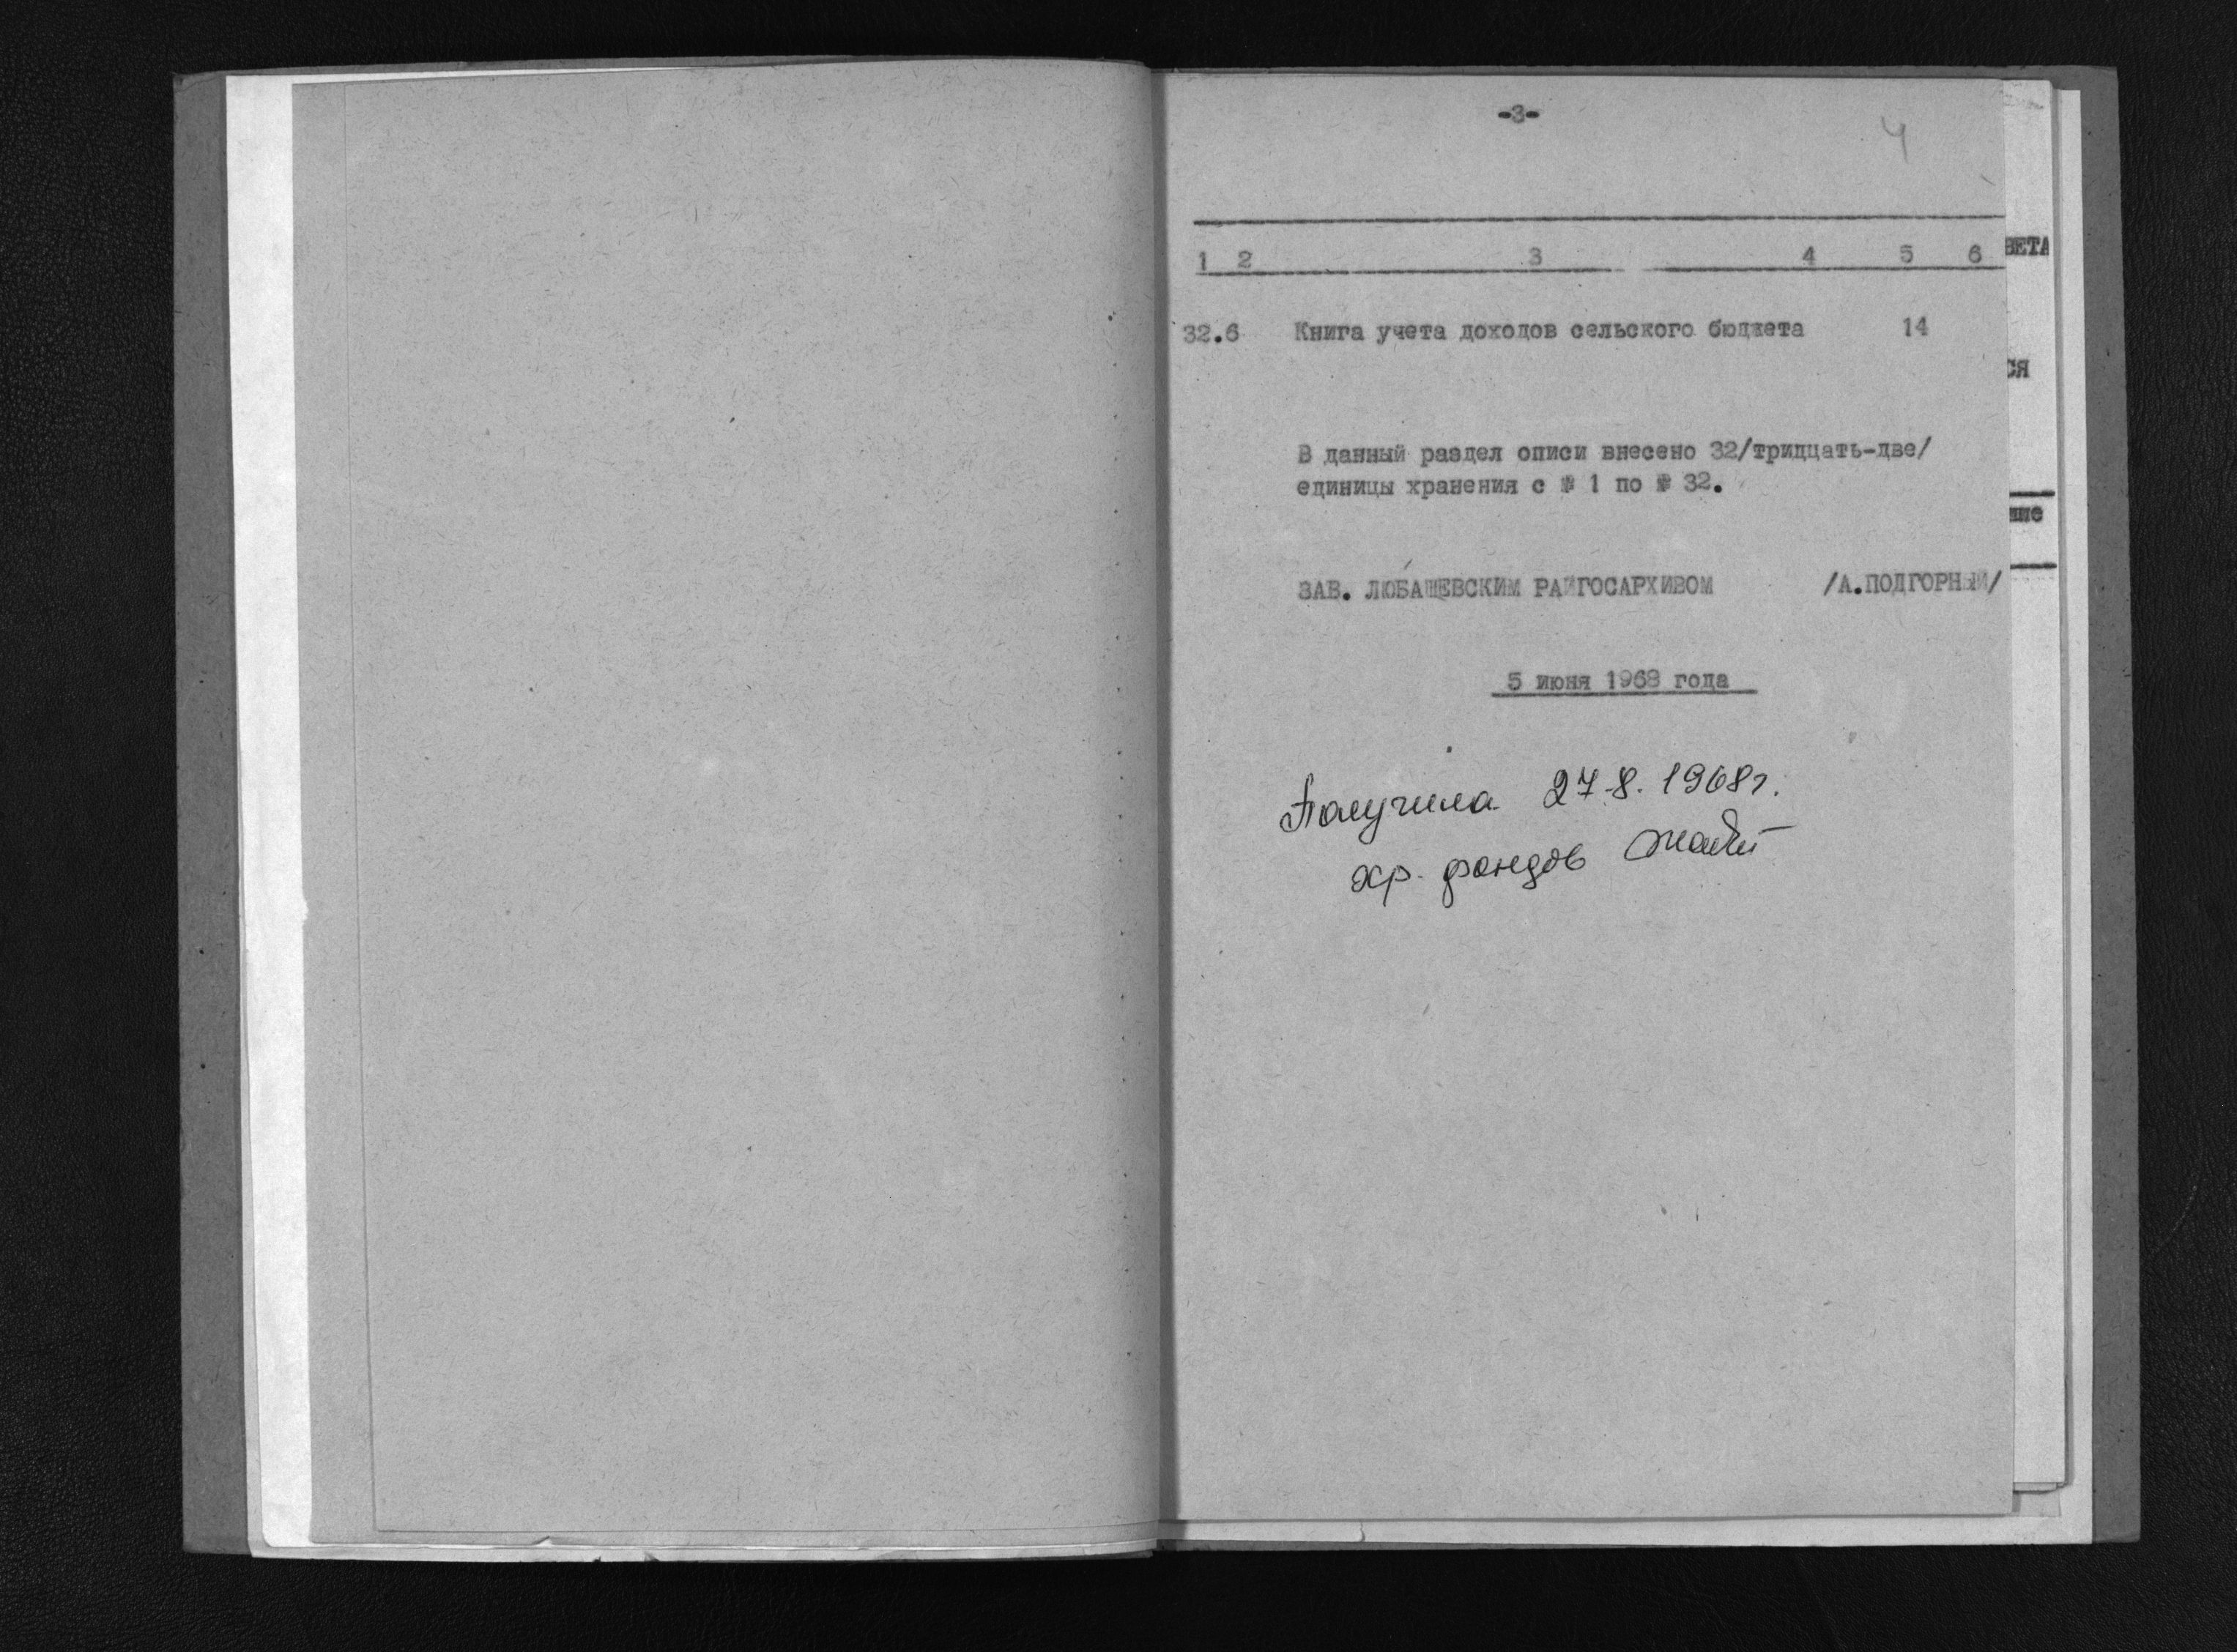 -3-
4
1 2 3 4 5 6
32.6 Книга учета доходов сельского бюджета 14
В данный раздел описи внесено 32/тридцать-две/
единицы хранения с № 1 по № 32.
ЗАВ. ЛЮБАШЕВСКИМ РАЙГОСАРХИВОМ /А.ПОДГОРНЫЙ/
5 июня 1968 года
Получила 27.8.1968г.
хр. фондов
ВЕТА
СЯ
ние